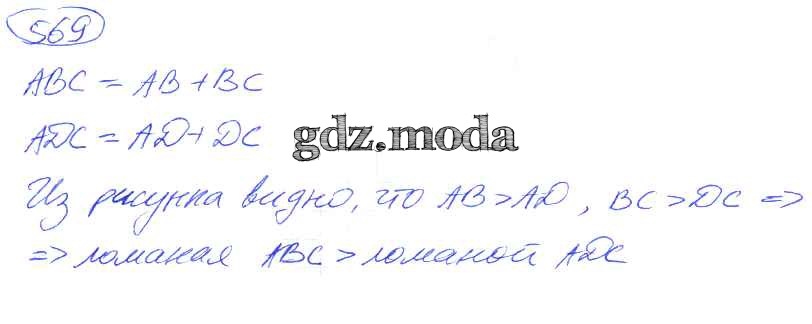 569
ABC = AB + BC
ADC = AD + DC
gdz.moda
Из рисунка видно, что AB > AD, BC > DC =>
=> ломаная ABC > ломаной ADC